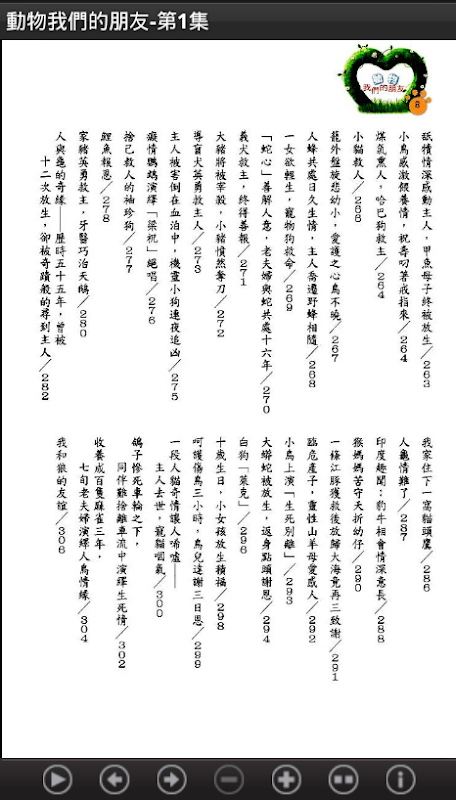 動物我們的朋友-第1集
動物
我們的朋友
舐犢情深感動主人，甲魚母子終被放生／263
小鳥感激餵養情，祝壽叼著戒指來／264
煤氣熏人，哈巴狗救主／264
小貓救人／266
籠外盤旋悲幼小，愛護之心鳥不曉／267
人蜂共處日久生情，主人喬遷野蜂相隨／268
一女欲輕生，寵物狗救命／269
「蛇心」善解人意，老夫婦與蛇共處十六年／270
義犬救主，終得善報／271
大豬將被宰殺，小豬憤然奪刀／272
導盲犬英勇救主人／273
主人被害倒在血泊中，機靈小狗連夜追凶／275
癡情鸚鵡演繹「梁祝」絕唱／276
捨己救人的袖珍狗／277
鯉魚報恩／278
家豬英勇救主，牙醫巧治天鵝／280
人與龜的奇緣——歷時五十五年，曾被
十二次放生，卻被奇蹟般的尋到主人／282
我家住下一窩貓頭鷹／286
人龜情難了／287
印度趣聞：豹牛相會情深意長／288
猴媽媽苦守夭折幼仔／290
一條江豚獲救後放歸大海竟再三致謝／291
臨危產子，靈性山羊母愛感人／292
小鳥上演「生死別離」／293
大蟒蛇被放生，返身點頭謝恩／294
白狗「萊克」／296
十歲生日，小女孩放生積福／298
呵護傷鳥三小時，鳥兒達謝三日恩／299
一段人貓奇情讓人唏噓——
主人去世，寵貓咽氣／300
鴿子慘死車輪之下，
同伴難捨離車流中演繹生死情／302
收養成百隻麻雀三年，
七旬老夫婦演繹人鳥情緣／304
我和狼的友誼／306